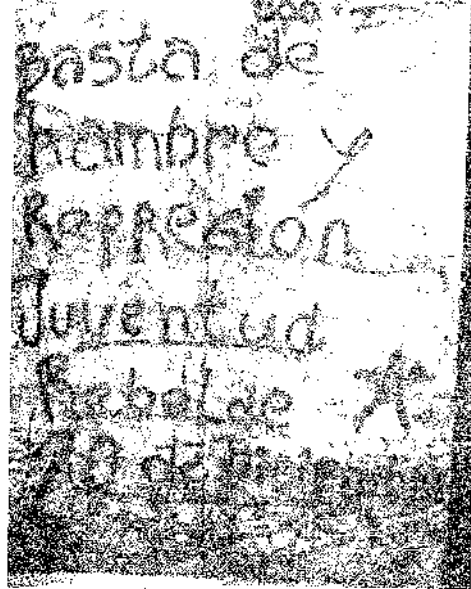 basta de
hambre y
Represion
Juventud
Rebelde
18 de